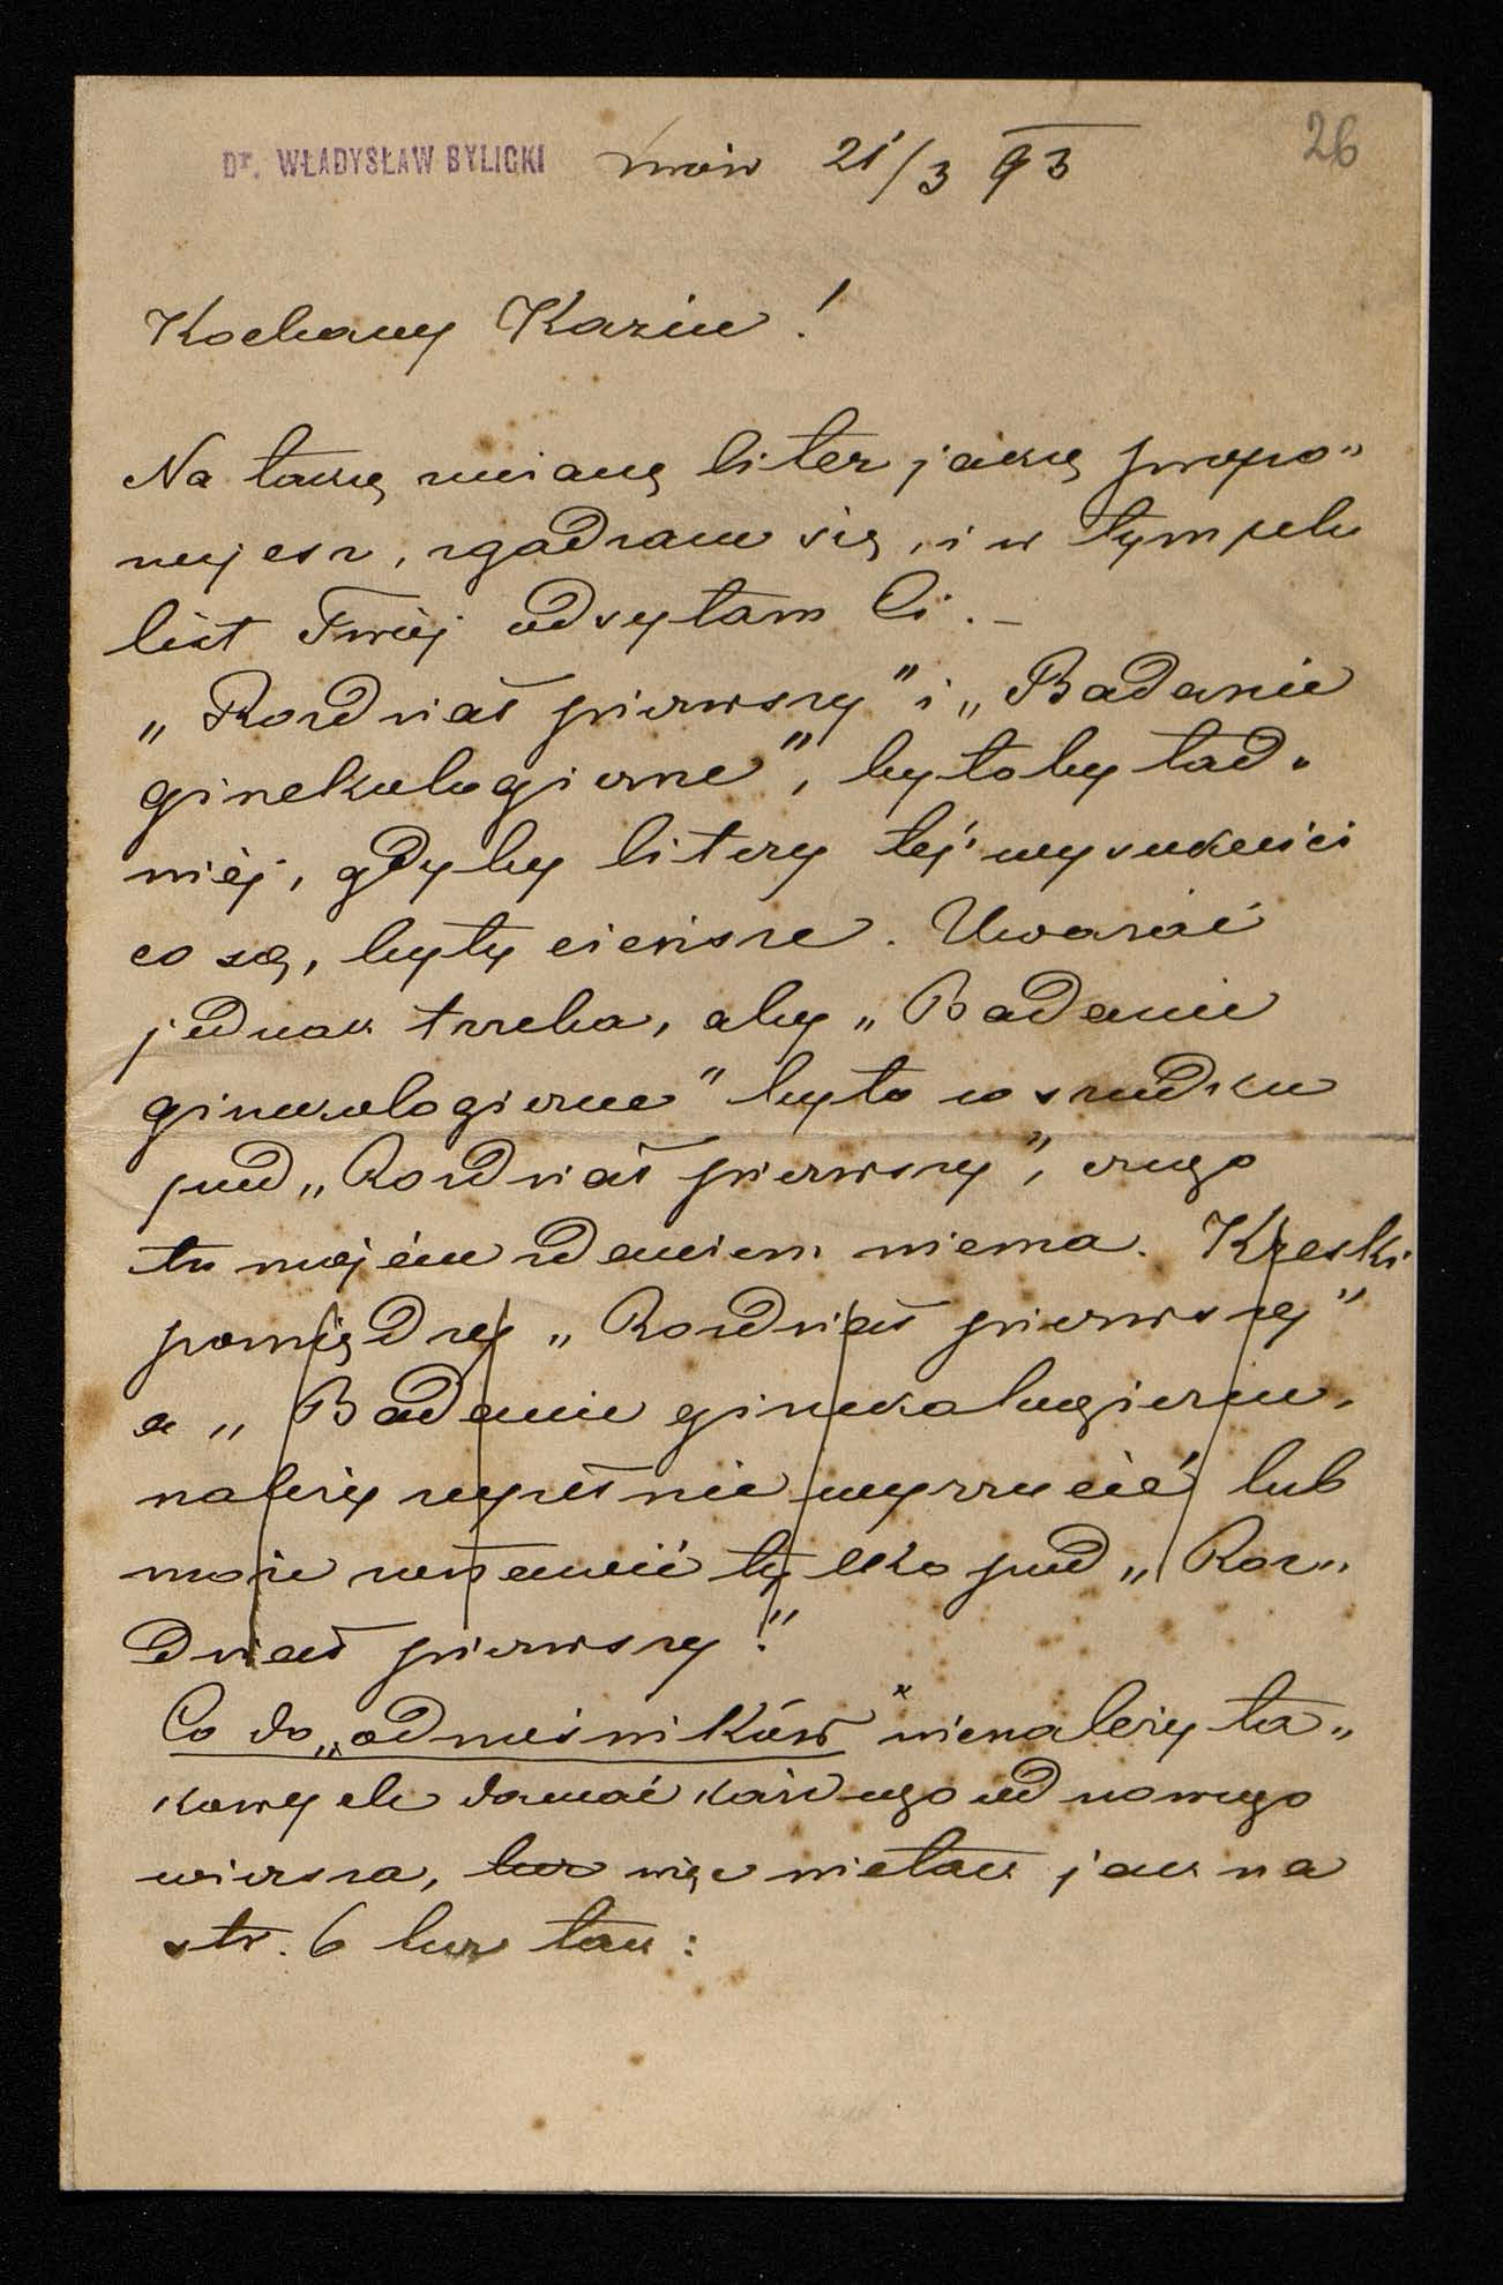 Dr. WŁADYSŁAW BYLICKI Lwów 21/3 93
26
Kochany Kaziu!
Na taką zmianę liter jaką propo„
nujesz, zgadzam się, i w tym celu
list Twój odsyłam Ci. –
„Rozdział pierwszy" i „Badanie
ginekologiczne", byłoby ład„
niéj, gdyby litery téj wysokości
co są, były cieńsze. Uważać
jednak trzeba, aby „Badanie
ginekologiczne" było w środku
pod „Rozdział pierwszy", czego
tu mojém zdaniem niema. Kreski
pomiędzy „Rozdział pierwszy"
a „Badanie ginekologiczne„
należy zupełnie wyrzucić lub
może zostawić tylko pod „Roz„
dział pierwszy."
Co do „odnośników" nienależy ta„
kowych dawać każdego od nowego
wiersza, lecz więc nietak jak na
str. 6 lecz tak: